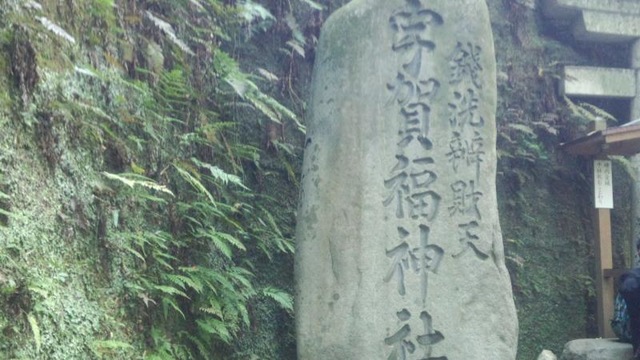 銭洗辨財天
宇賀福神社